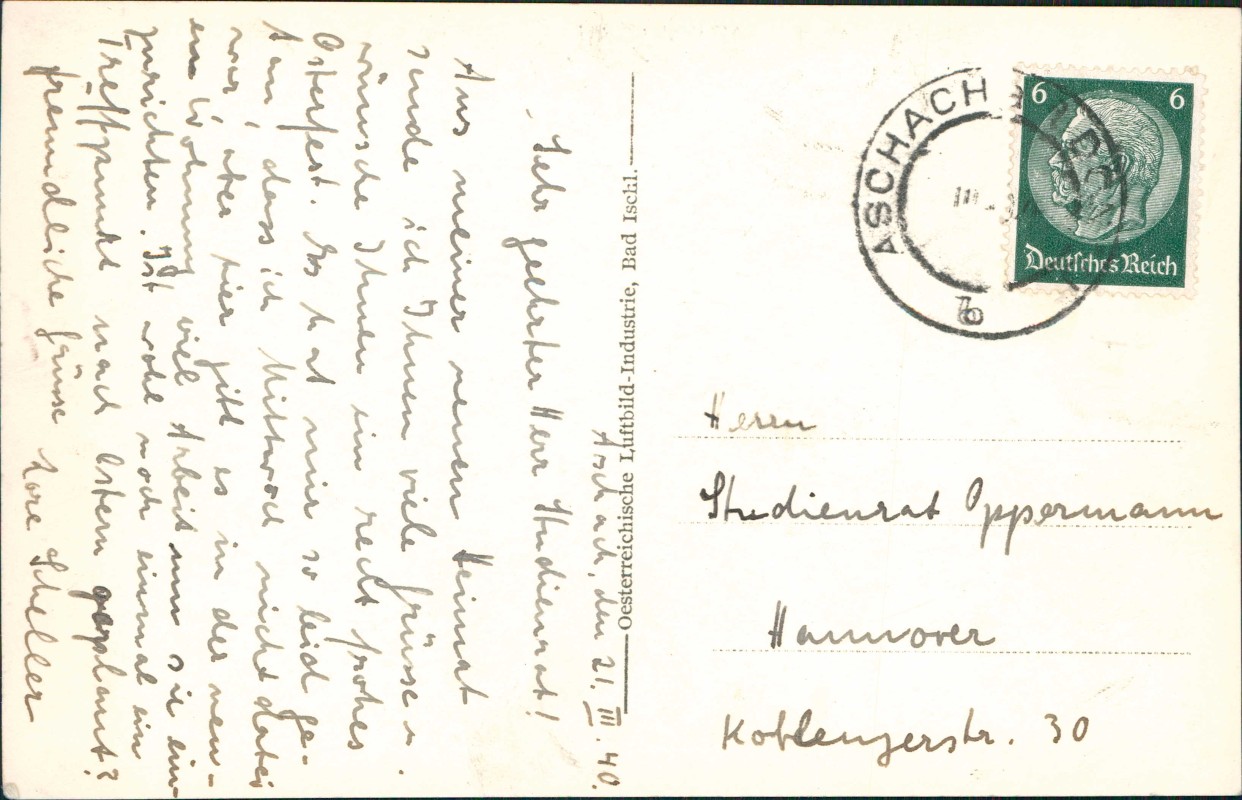 Aschach, den 21. III. 40.
Sehr geehrter Herr Studienrat!
Aus meiner neuen Heimat
sende ich Ihnen viele Grüsse u.
wünsche Ihnen ein recht frohes
Osterfest. Es hat mir so leid ge-
tan, dass ich Mittwoch nicht dabei
war, aber hier gibt es in der neu-
en Wohnung viel Arbeit um sie ein-
zurichten. Ist wohl noch einmal ein
Treffpunkt nach Ostern geplant?
freundliche Grüsse Lore Scheller
Oesterreichische Luftbild-Industrie, Bad Ischl.
ASCHACH
b
6 6
Deutsches Reich
Herrn
Studienrat Oppermann
Hannover
Koblenzerstr. 30